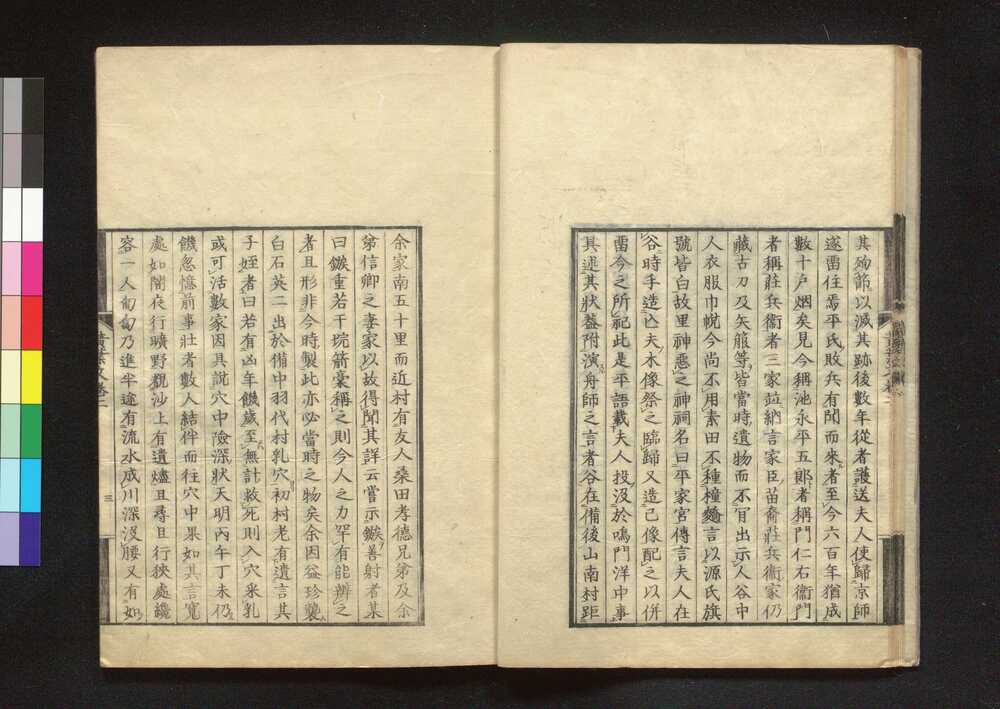 其殉節以滅其跡後數年從者護送夫人使歸京師
遂畱住焉平氏敗兵有聞而來者至今六百年猶成
數十戸烟矣見今稱池永平五郎者稱門仁右衞門
者稱莊兵衞者三家竝納言家臣苗裔莊兵衞家仍
藏古刀及矢箙等皆當時遺物而不肎出示人谷中
人衣服巾帨今尚不用素田不種橦麵言以源氏旗
號皆白故里神惡之神祠名曰平家宮傳言夫人在
谷時手造亾夫木像祭之臨歸又造己像配之以併
畱今之所祀此是平語載夫人投沒於鳴門洋中事
其述其狀蓋附演舟師之言者谷在備後山南村距
余家南五十里而近村有友人桑田孝德兄弟及余
弟信卿之妻家以故得聞其詳云嘗示鏃善射者某
曰鏃重若干垸箭稾稱之則今人之力罕有能辨之
者且形非今時製此亦必當時之物矣余因益珍襲
白石英二出於備中羽代村乳穴初村老有遺言其
子姪者曰若有凶年饑歲至無計救死則入穴采乳
或可活數家因具說穴中險深狀天明丙午丁未仍
饑忽憶前事壯者數人結伴而往穴中果如其言寬
處如闇夜行曠野觀沙上有遺燼且尋且行狹處纔
容一人匍匐乃進半途有流水成川深沒腰又有如
三